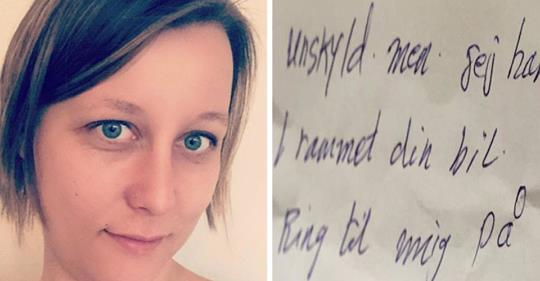 unskyld. men. jeg har
rammet din bil.
Ring til mig på